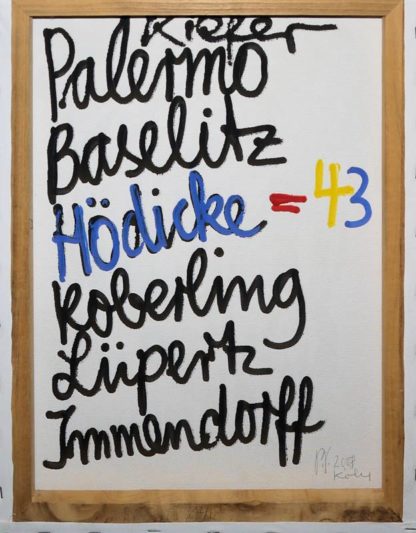 Kiefer
Palermo
Baselitz
Hödicke = 43
Koberling
Lüpertz
Immendorff
Köln